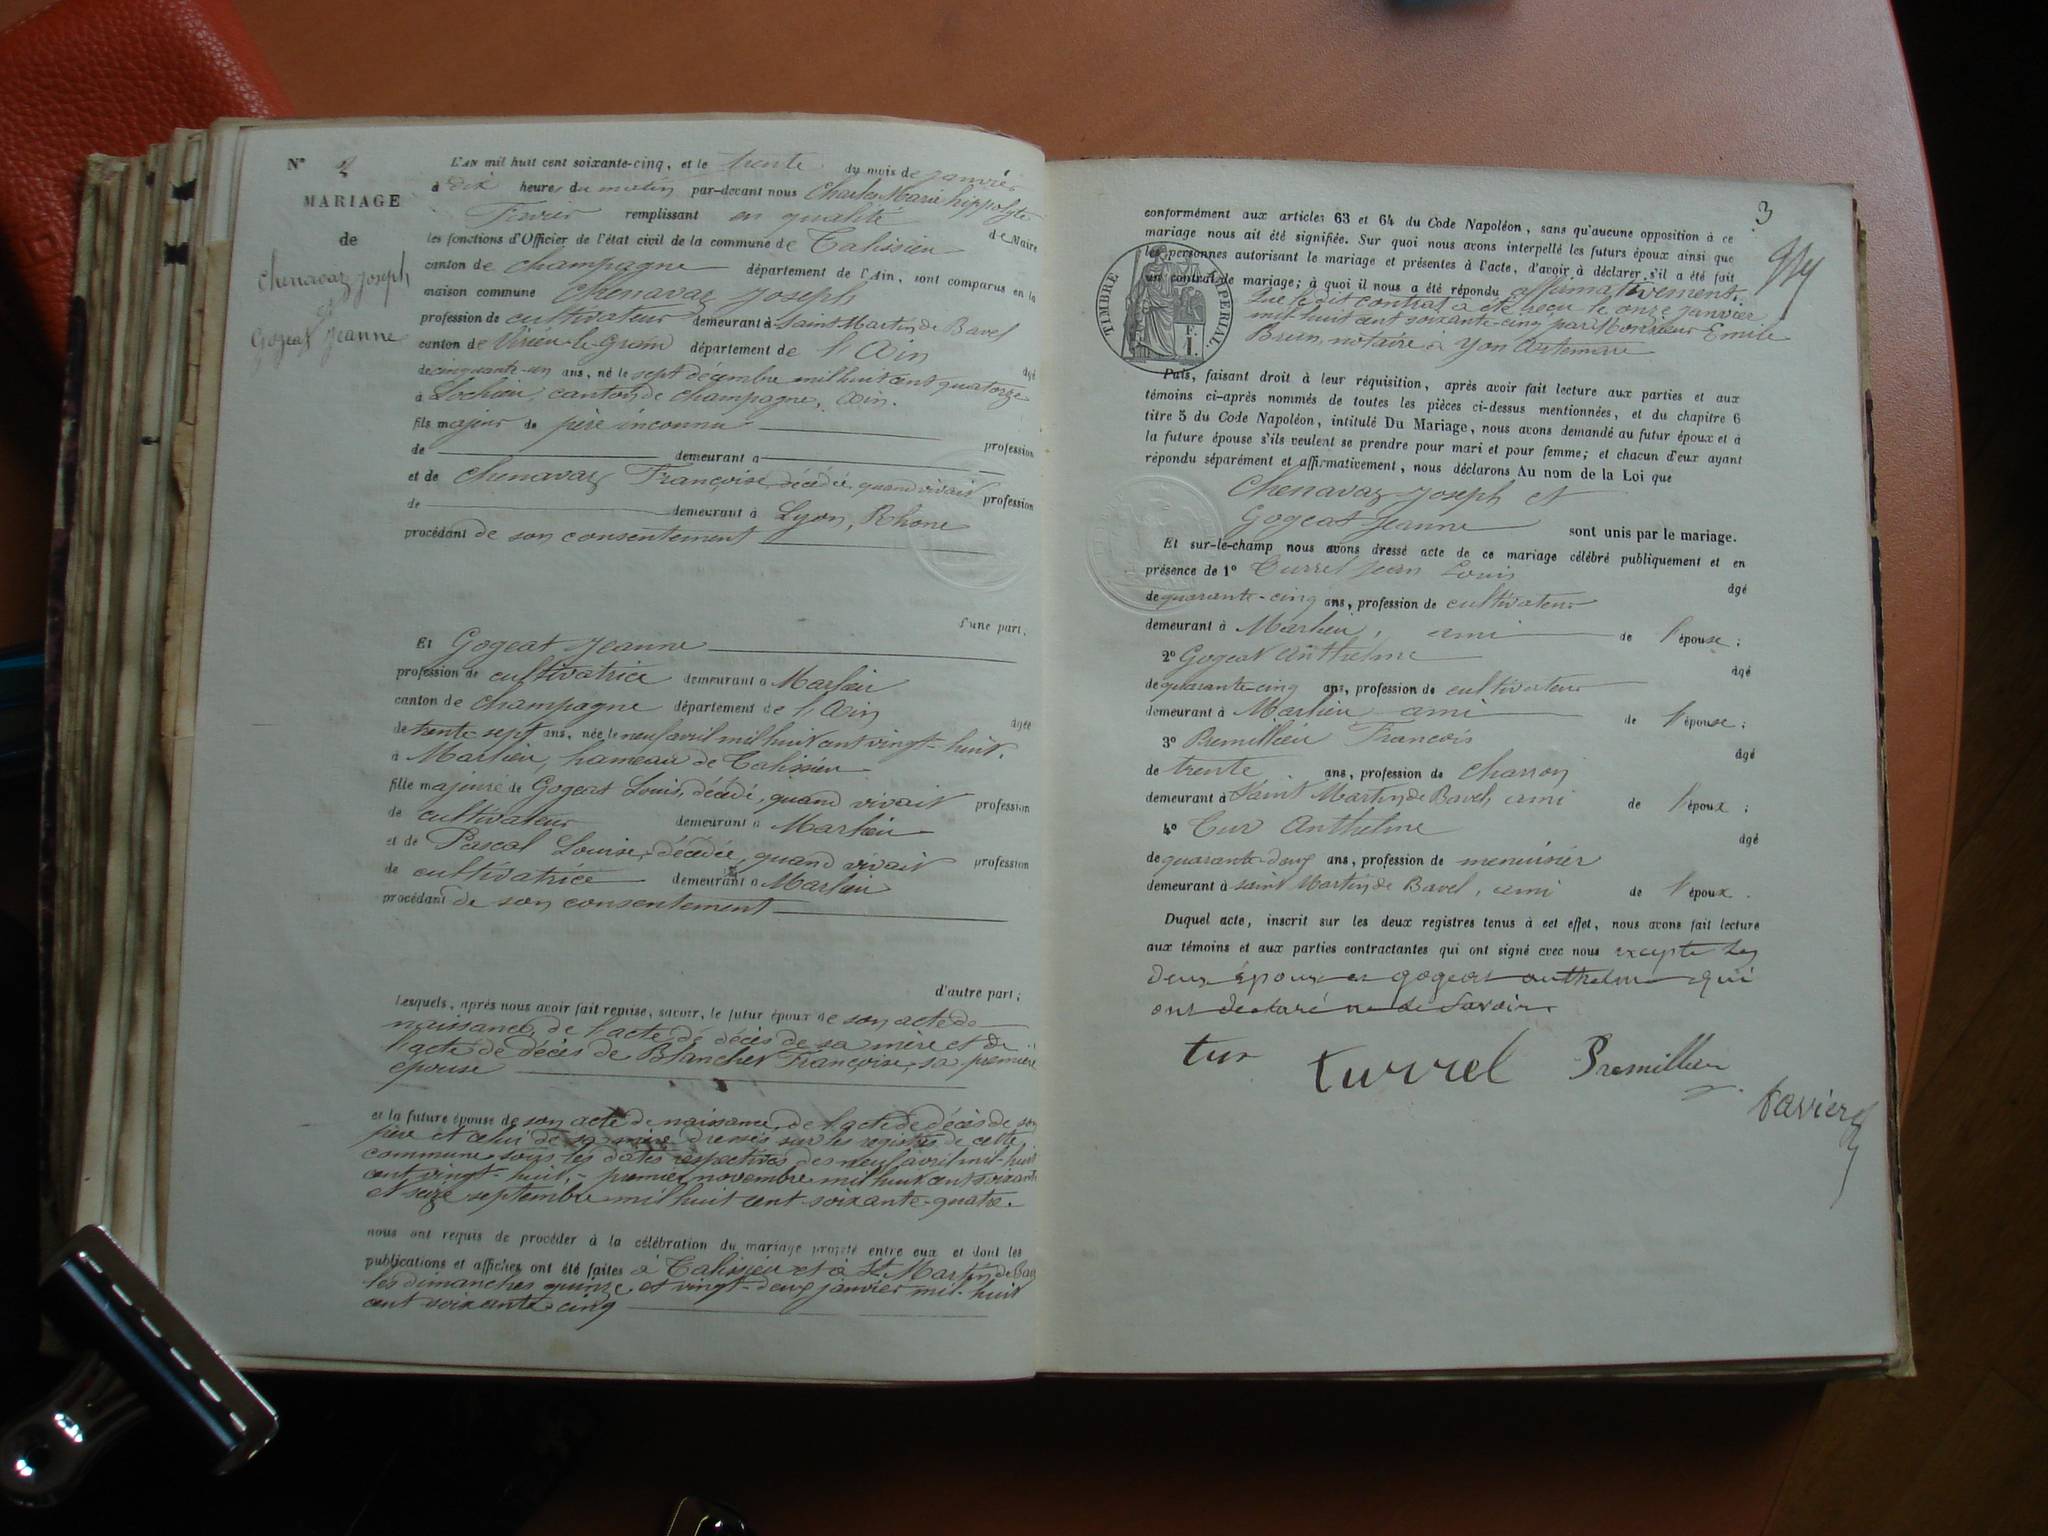 N° 2
MARIAGE
de
Chenavaz Joseph
et
Gogeat Jeanne
L'AN mil huit cent soixante-cinq, et le trente du mois de janvier
à dix heures du matin par-devant nous Charles Marie hippolyte
remplissant en qualité de Maire
les fonctions d'Officier de l'état civil de la commune de Talissieu
canton de Champagne département de l'Ain, sont comparus en la
maison commune Chenavaz Joseph
profession de cultivateur demeurant à Saint Martin de Bavel
canton de Virieu-le-Grand département de l'Ain âgé
de cinquante-un ans, né le sept décembre mil huit cent quatorze
à Lochieu, canton de Champagne, Ain.
fils majeur de père inconnu profession
de demeurant a
et de Chenavaz Françoise, décédée, quand vivait profession
de demeurant à Lyon, Rhône
procédant de son consentement
d'une part,
Et Gogeat Jeanne
profession de cultivatrice demeurant a Marlieu
canton de Champagne département de l'Ain âgée
de trente sept ans, née le neuf avril mil huit cent vingt-huit.
à Marlieu, hameau de Talissieu
fille majeure de Gogeat Louis, décédé, quand vivait profession
de cultivateur demeurant a Marlieu
et de Pascal Louise, décédée, quand vivait profession
de cultivatrice demeurant a Marlieu
procédant de son consentement
d'autre part;
Lesquels, après nous avoir fait remise, savoir, le futur époux de son acte de
naissance, de l'acte de décès de sa mère et de
l'acte de décès de Blanchet Françoise, sa première
épouse
et la future épouse de son acte de naissance, de l'acte de décès de son
père et celui de sa mère dressés sur les registres de cette
commune sous les dates respectives des neuf avril mil-huit
cent vingt-huit, premier novembre mil huit cent soixante
et seize septembre mil huit cent soixante-quatre.
nous ont requis de procéder à la célébration du mariage projeté entre eux et dont les
publications et affiches ont été faites à Talissieu et à St Martin de Bavel
les dimanches quinze et vingt-deux janvier mil-huit
cent soixante cinq
3
conformément aux articles 63 et 64 du Code Napoléon, sans qu'aucune opposition à ce
mariage nous ait été signifiée. Sur quoi nous avons interpellé les futurs époux ainsi que
les personnes autorisant le mariage et présentes à l'acte, d'avoir à déclarer s'il a été fait
un contrat de mariage; à quoi il nous a été répondu affirmativement.
Que le dit contrat a été reçu le onze janvier
mil huit cent soixante-cinq par Monsieur Emile
Brun, notaire à Yon Artemare
TIMBRE IMPERIAL.
F.
1.
Puis, faisant droit à leur réquisition, après avoir fait lecture aux parties et aux
témoins ci-après nommés de toutes les pièces ci-dessus mentionnées, et du chapitre 6
titre 5 du Code Napoléon, intitulé Du Mariage, nous avons demandé au futur époux et à
la future épouse s'ils veulent se prendre pour mari et pour femme; et chacun d'eux ayant
répondu séparément et affirmativement, nous déclarons Au nom de la Loi que
Chenavaz Joseph et
Gogeat Jeanne sont unis par le mariage.
Et sur-le-champ nous avons dressé acte de ce mariage célébré publiquement et en
présence de 1° Turrel Jean Louis âgé
de quarante-cinq ans, profession de cultivateur
demeurant à Marlieu, ami de l'épouse;
2° Gogeat Anthelme âgé
de quarante-cinq ans, profession de cultivateur
demeurant à Marlieu ami de l'épouse;
3° Premillieu François âgé
de trente ans, profession de charron
demeurant à Saint Martin de Bavel, ami de l'époux;
4° Tur Anthelme âgé
de quarante-deux ans, profession de menuisier
demeurant à saint Martin de Bavel, ami de l'époux.
Duquel acte, inscrit sur les deux registres tenus à cet effet, nous avons fait lecture
aux témoins et aux parties contractantes qui ont signé avec nous excepté les
deux époux et gogeat anthelme qui
ont déclaré ne le savoir.
tur turrel Premillieu